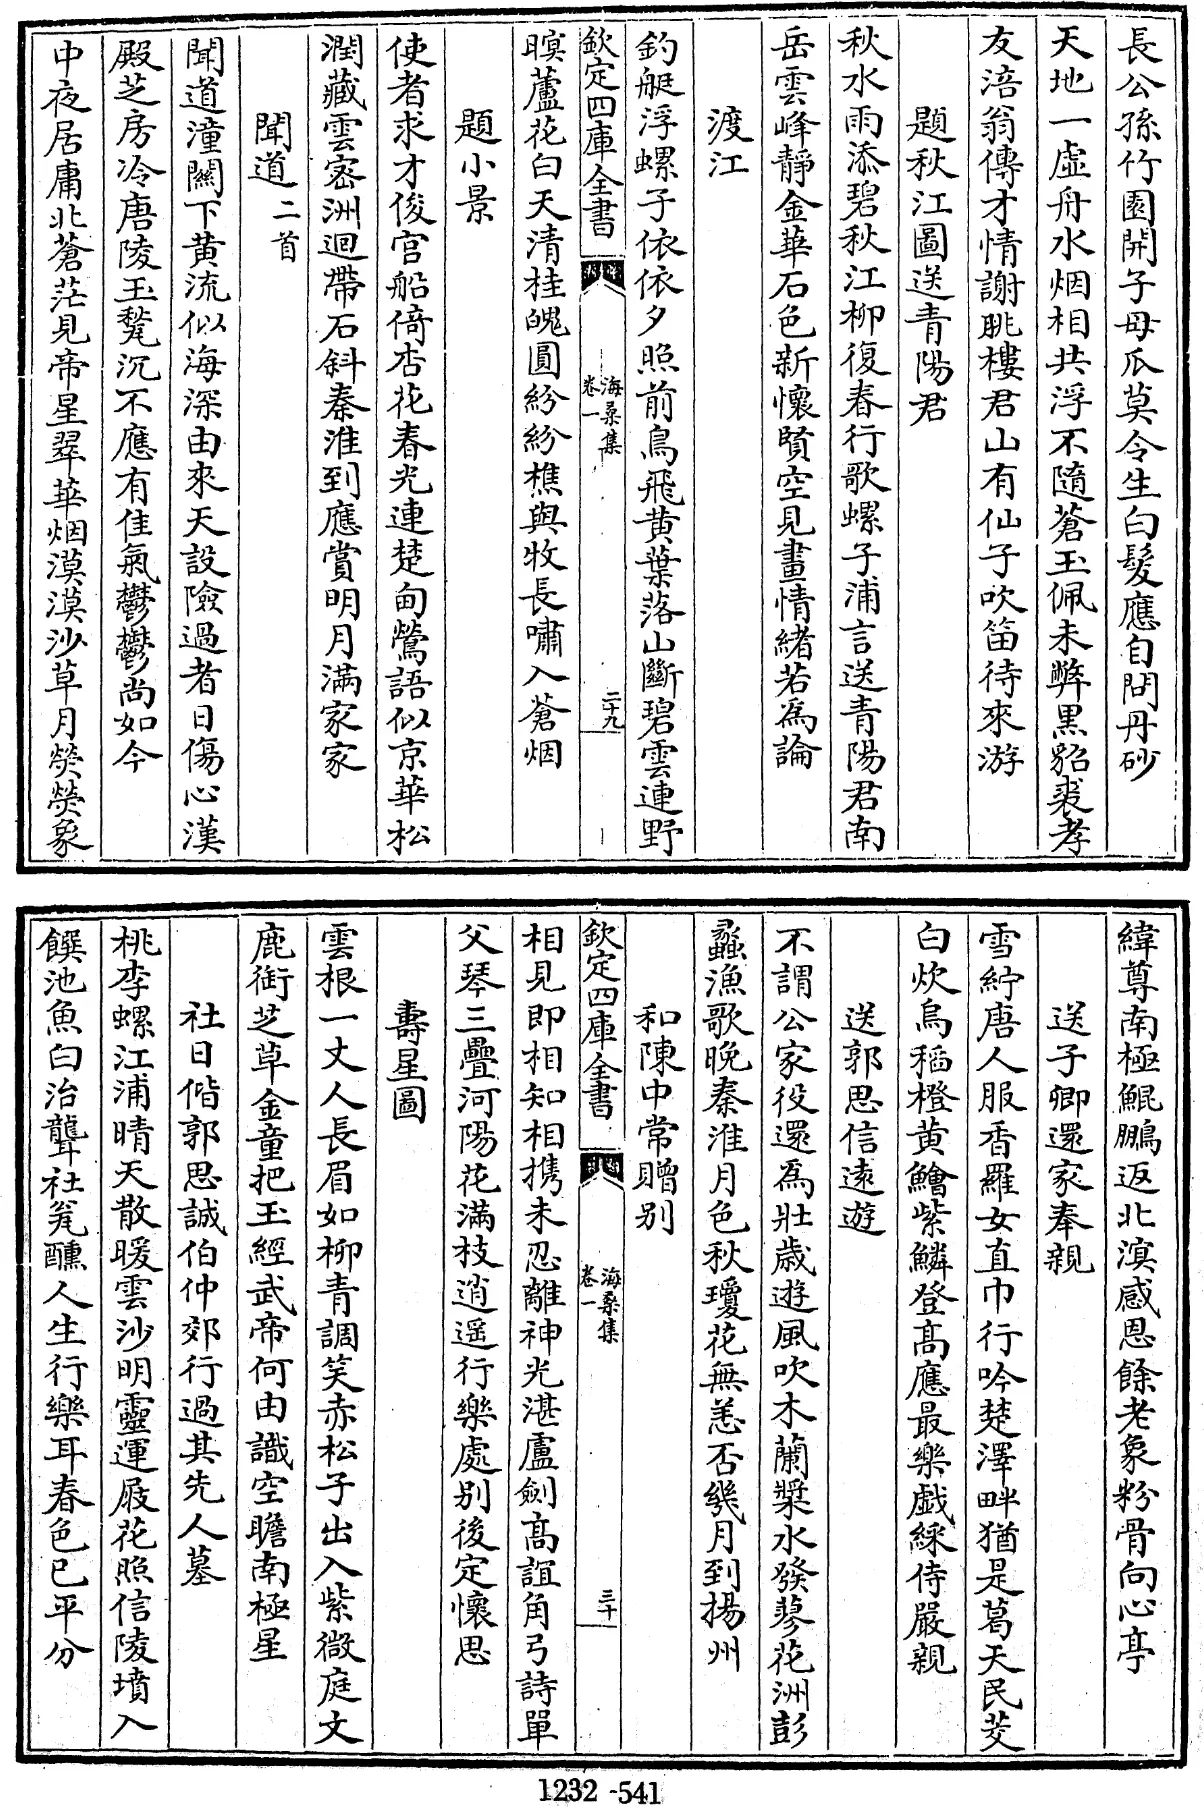 長公孫竹園開子母瓜莫令生白髮應自問丹砂
天地一虛舟水烟相共浮不隨蒼玉佩未弊黒貂裘孝
友涪翁傳才情謝眺樓君山有仙子吹笛待來游
題秋江圖送青陽君
秋水雨添碧秋江柳復春行歌螺子浦言送青陽君南
岳雲峰靜金華石色新懷賢空見畫情緒若為論
渡江
釣艇浮螺子依依夕照前鳥飛黄葉落山斷碧雲連野
欽定四庫全書
海桑集
卷一
二十九
暝蘆花白天清桂魄圓紛紛樵與牧長嘯入蒼烟
題小景
使者求才俊宫船倚杏花春光連楚甸鶯語似京華松
澗藏雲宻洲迴帶石斜秦淮到應賞明月滿家家
聞道二首
聞道潼闗下黄流似海深由來天設險過者日傷心漢
殿芝房冷唐陵玉甃沉不應有佳氣鬱鬱尚如今
中夜居庸北蒼茫見帝星翠華烟漠漠沙草月熒熒象
緯尊南極鯤鵬返北溟感恩餘老象粉骨向心亭
送子卿還家奉親
雪紵唐人服香羅女直巾行吟楚澤畔猶是葛天民茭
白炊烏稻橙黄鱠紫鱗登髙應最樂戯綵侍嚴親
送郭思信逺遊
不謂公家役還為壯歳遊風吹木蘭槳水發蓼花洲彭
蠡漁歌晚秦淮月色秋瓊花無恙否幾月到揚州
和陳中常贈别
欽定四庫全書
海桑集
卷一
三十
相見即相知相携未忍離神光湛盧劍髙誼角弓詩單
父琴三疊河陽花滿枝逍遥行樂處别後定懷思
壽星圖
雲根一丈人長眉如柳青調笑赤松子出入紫微庭文
鹿銜芝草金童把玉經武帝何由識空瞻南極星
社日偕郭思誠伯仲郊行過其先人墓
桃李螺江浦晴天散暖雲沙明靈運屐花照信陵墳入
饌池魚白治聾社瓮醺人生行樂耳春色已平分
1232-541